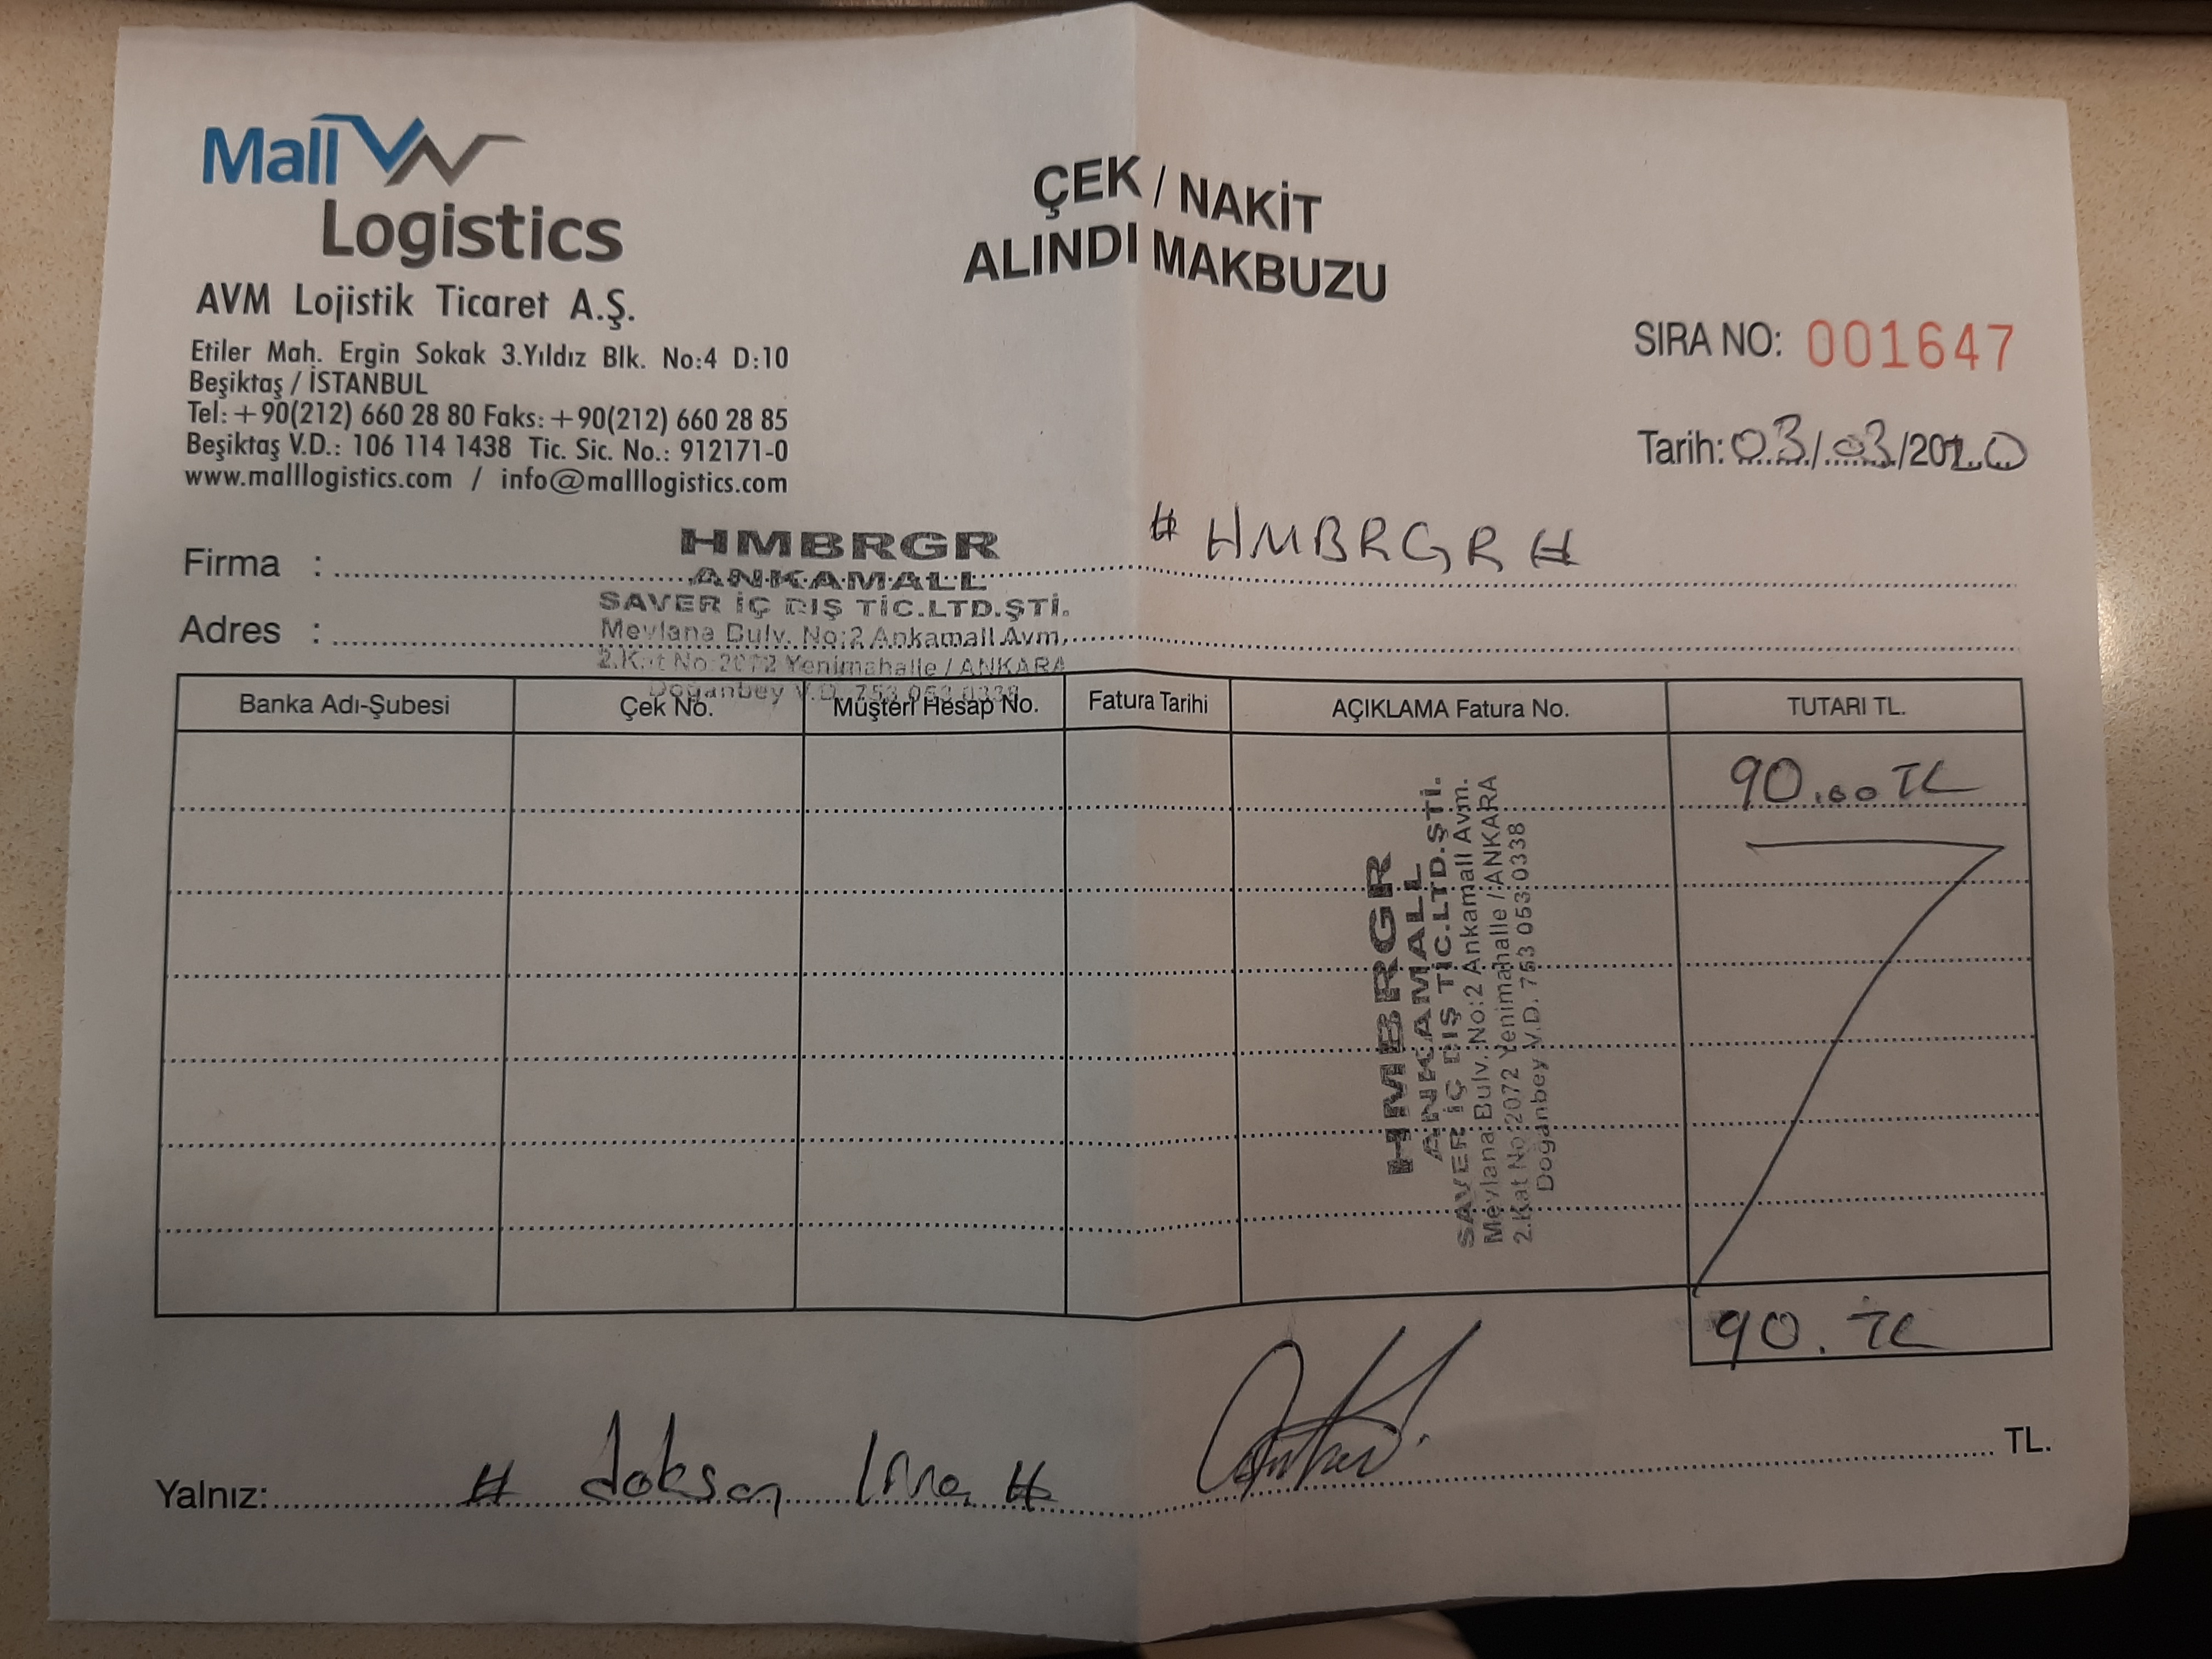 Mall
Logistics
AVM Lojistik Ticaret A.Ş.
Etiler Mah. Ergin Sokak 3.Yıldız Blk. No:4 D:10
Beşiktaş / İSTANBUL
Tel:+90(212) 660 28 80 Faks:+90(212) 660 28 85
Beşiktaş V.D.: 106 114 1438 Tic. Sic. No.: 91217 1-0
www.malllogistics.com / info@malllogistics.com
ÇEK / NAKİT
ALINDI MAKBUZU
SIRA NO: 001647
Tarih: 03/03/2020
Firma :
HMBRGR
# HMBRGR #
ANKAMALL
SAVER İÇ DIŞ TİC.LTD.ŞTİ.
Adres :
Mevlana Bulv. No:2 Ankamall Avm.
2.Kat No:2072 Yenimahalle / ANKARA
Doğanbey V.D. 753 053 0338
Banka Adı-Şubesi Çek No. Müşteri Hesap No. Fatura Tarihi AÇIKLAMA Fatura No. TUTARI TL.
90.00 TL
HMBRGR
ANKAMALL
SAVER İÇ DIŞ TİC.LTD.ŞTİ.
Mevlana Bulv. No:2 Ankamall Avm.
2.Kat No:2072 Yenimahalle / ANKARA
Doğanbey V.D. 753 053 0338
90. TL
Yalnız: # doksan lira # TL.